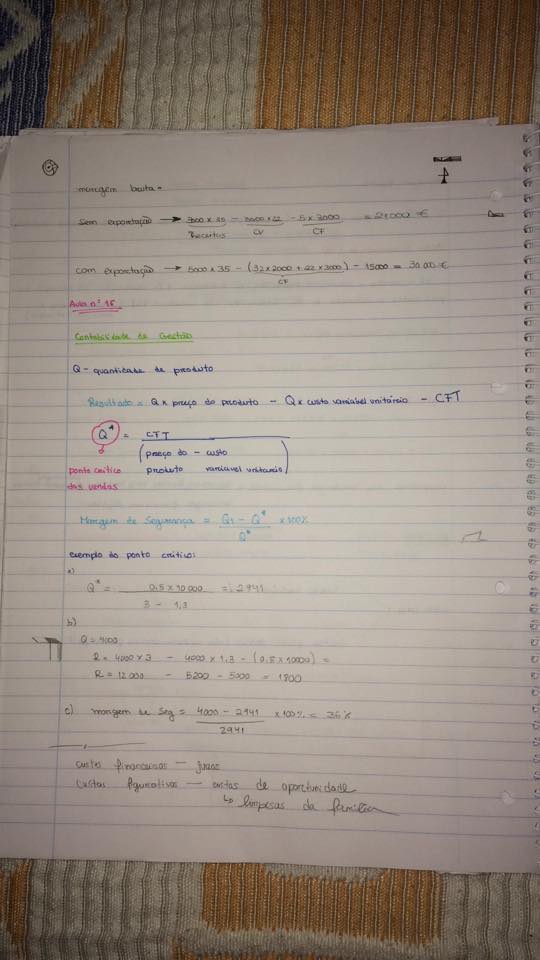 margem bruta =
Sem exportação → 3000 x 35 - 3000 x 22 - 5 x 3000 = 24000 €
Receitas CV CF
com exportação → 5000 x 35 - (32 x 2000 + 22 x 3000) - 15000 = 30.000 €
CF
Aula nº 15
Contabilidade de Gestão
Q - quantidade de produto
Resultado = Q x preço do produto - Q x custo variavel unitário - CFT
Q* = CFT
(preço do - custo
ponto crítico produto variavel unitario)
das vendas
Margem de Segurança = Q1 - Q* x 100%
Q*
exemplo do ponto critico:
a)
Q* = 0,5 x 10 000 = 2941
3 - 1,3
b)
Q = 4000
R = 4000 x 3 - 4000 x 1,3 - (0,5 x 10000) =
R = 12 000 - 5200 - 5000 = 1800
c) margem de Seg = 4000 - 2941 x 100% = 36 %
2941
custos financeiros - juros
custos figurativos - custos de oportunidade
↳ da família